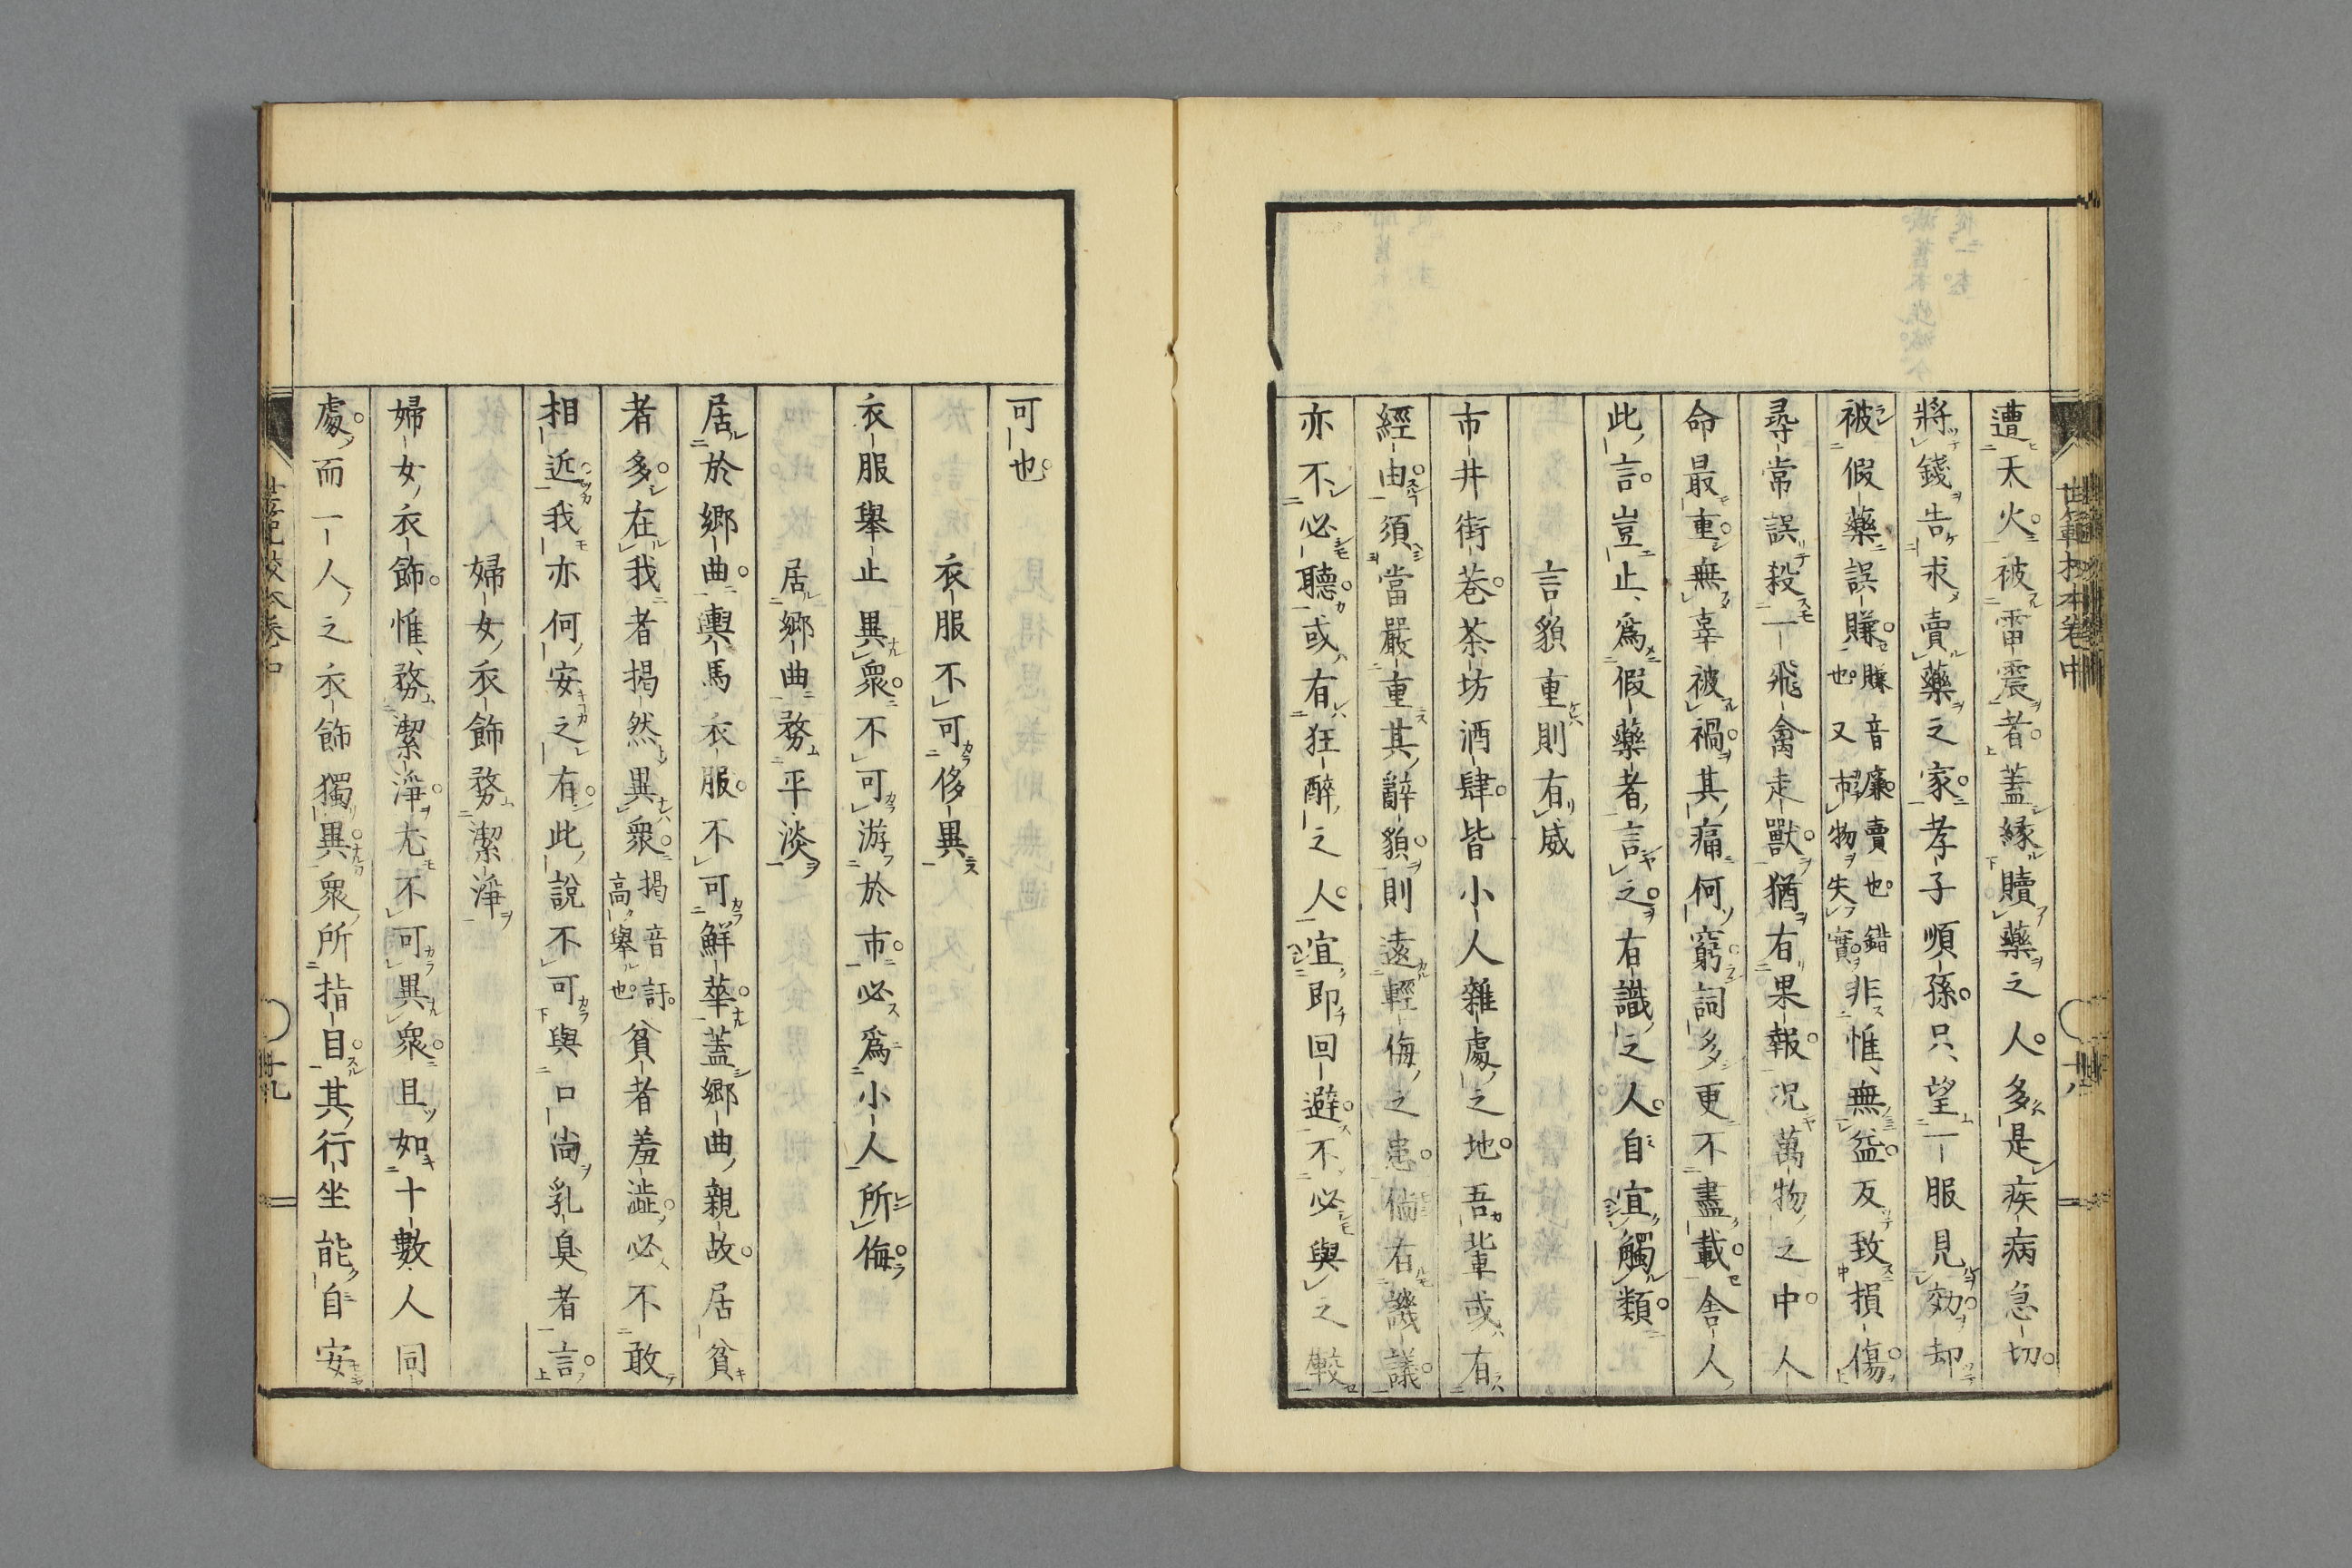 遭天火被雷震者蓋緣贖藥之人多是疾病急切
將錢告求賣藥之家孝子順孫只望一服見效却
被假藥誤賺賺音廉賣也錯也又市物失實非惟無益反致損傷
尋常誤殺一飛禽走獸猶有果報況萬物之中人
命最重無辜被禍其痛何窮詞多更不盡載舍人
此言豈止為假藥者言之有識之人自宜觸類
言貌重則有威
市井街巷茶坊酒肆皆小人雜處之地吾輩或有
經由須當嚴重其辭貌則遠輕侮之患倘有譏議
亦不必聽或有狂醉之人宜即回避不必與之較
可也
衣服不可侈異
衣服舉止異衆不可游於市必為小人所侮
居鄉曲務平淡
居於鄉曲輿馬衣服不可鮮華蓋鄉曲親故居貧
者多在我者揭然異衆揭音訐高舉也貧者羞澁必不敢
相近我亦何安之有此說不可與口尚乳臭者言
婦女衣飾務潔淨
婦女衣飾惟務潔淨尤不可異衆且如十數人同
處而一人之衣飾獨異衆所指目其行坐能自安